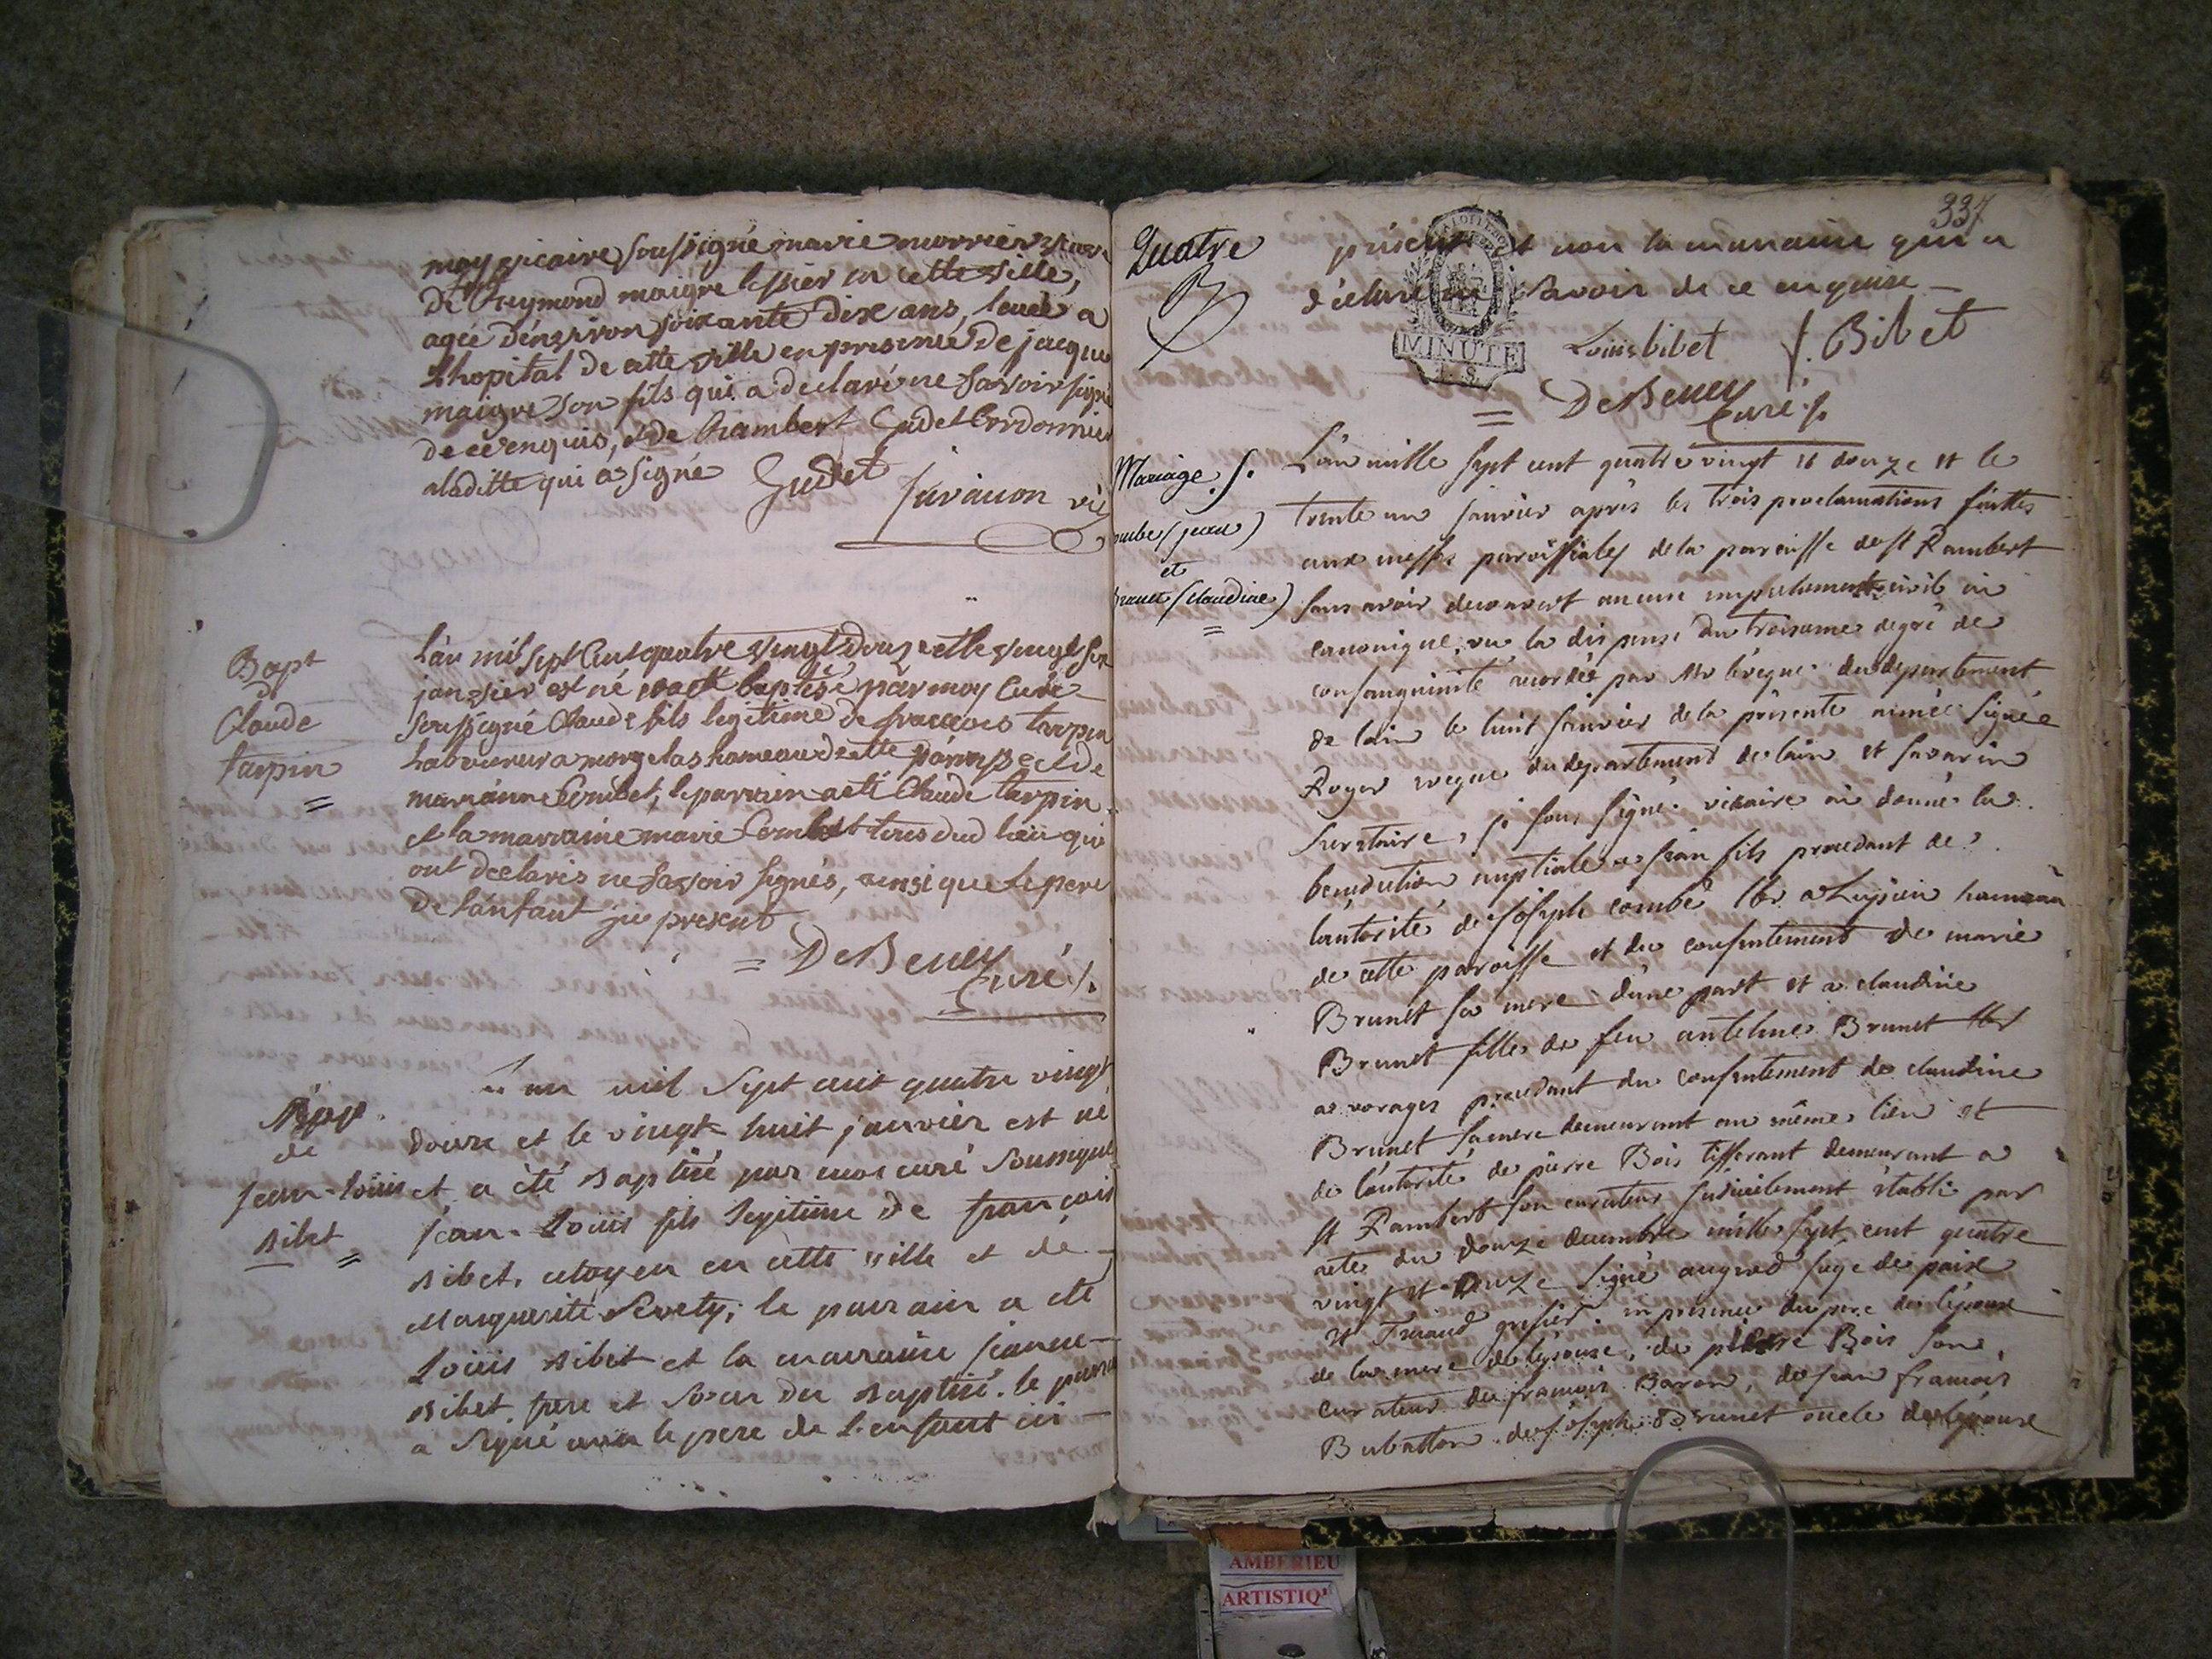 moy vicaire soussigné marie morrier veuve
De Reymond maigre tessier en cette ville,
agée d'environ soixante Dix ans, levée a
L'hopital De cette ville en presence De jacque
maigre son fils qui a declaré ne savoir signé
De ce enquis, et de Rambert Gudet Cordonnier
aladitte qui a signé Gudet
juvanon vic
Bapt
de
Claude
tarpin
L'an mil sept Cent quatre vingt Douze et le vingt six
janvier est né et a été baptisé par moy Curé
soussigné Claude fils legitime de francois tarpin
Laboureur a morgelas hameau De cette paroisse et De
marianne Combet, le parrain a été Claude tarpin
et la marraine marie Combet tous dud lieu qui
ont declarés ne savoir signés, ainsi que le pere
De l'anfant ici present
= DeBeney
Curé
Bapt.
de
jean-Louis
Bibet
L'an mil sept cent quatre vingt
douze et le vingt huit janvier est né
et a été Baptisé par moi curé soussigné
jean-Louis fils legitime de françois
Bibet, citoyen en cette ville et de
Marguerite; le parrain a été
Louis Bibet et la marraine jeanne
Bibet, frere et soeur du Baptisé. le parrain
a signé avec le pere de l'enfant ici
337
Quatre
présent et non la marraine qui a
déclaré ne savoir de ce enquise
MINUTE
Louis bibet f. Bibet
= DeBeney
Curé
Mariage
combe (jean)
et
Brunet (claudine)
L'an mille sept cent quatre vingt et douze et le
trente un janvier après les trois proclamations faittes
aux messes paroissiales de la paroisse de st Rambert
sans avoir decouvert aucun empechement civil ni
canonique, vu la dispense du troisieme degré de
consanguinité accordée par Mr l'éveque du departement
de lain le huit janvier de la présente année signée
Royer eveque du departement de lain et savarin
secretaire, je sous signé vicaire ai donné la
benediction nuptiale a jean fils procedant de
l'autorité de joseph combe lbr a Lupieu hameau
de cette paroisse et du consentement de marie
Brunet sa mere d'une part et a claudine
Brunet fille de feu antelme Brunet lbr
a vorages procedant du consentement de claudine
Brunet sa mere demeurant au même lieu et
de l'autorité de pierre Bois tisserant demeurant a
st Rambert son curateur judiciellement établi par
acte du douze decembre mille sept cent quatre
vingt et onze signé augerd juge de paix
et grefier. en presence du pere de l'époux
de la mere de l'épouse, de pierre Bois son
curateur de françois Baron, de jean françois
Bubatton de joseph Brunet oncle de l'épouse
AMBERIEU
ARTISTIQ'